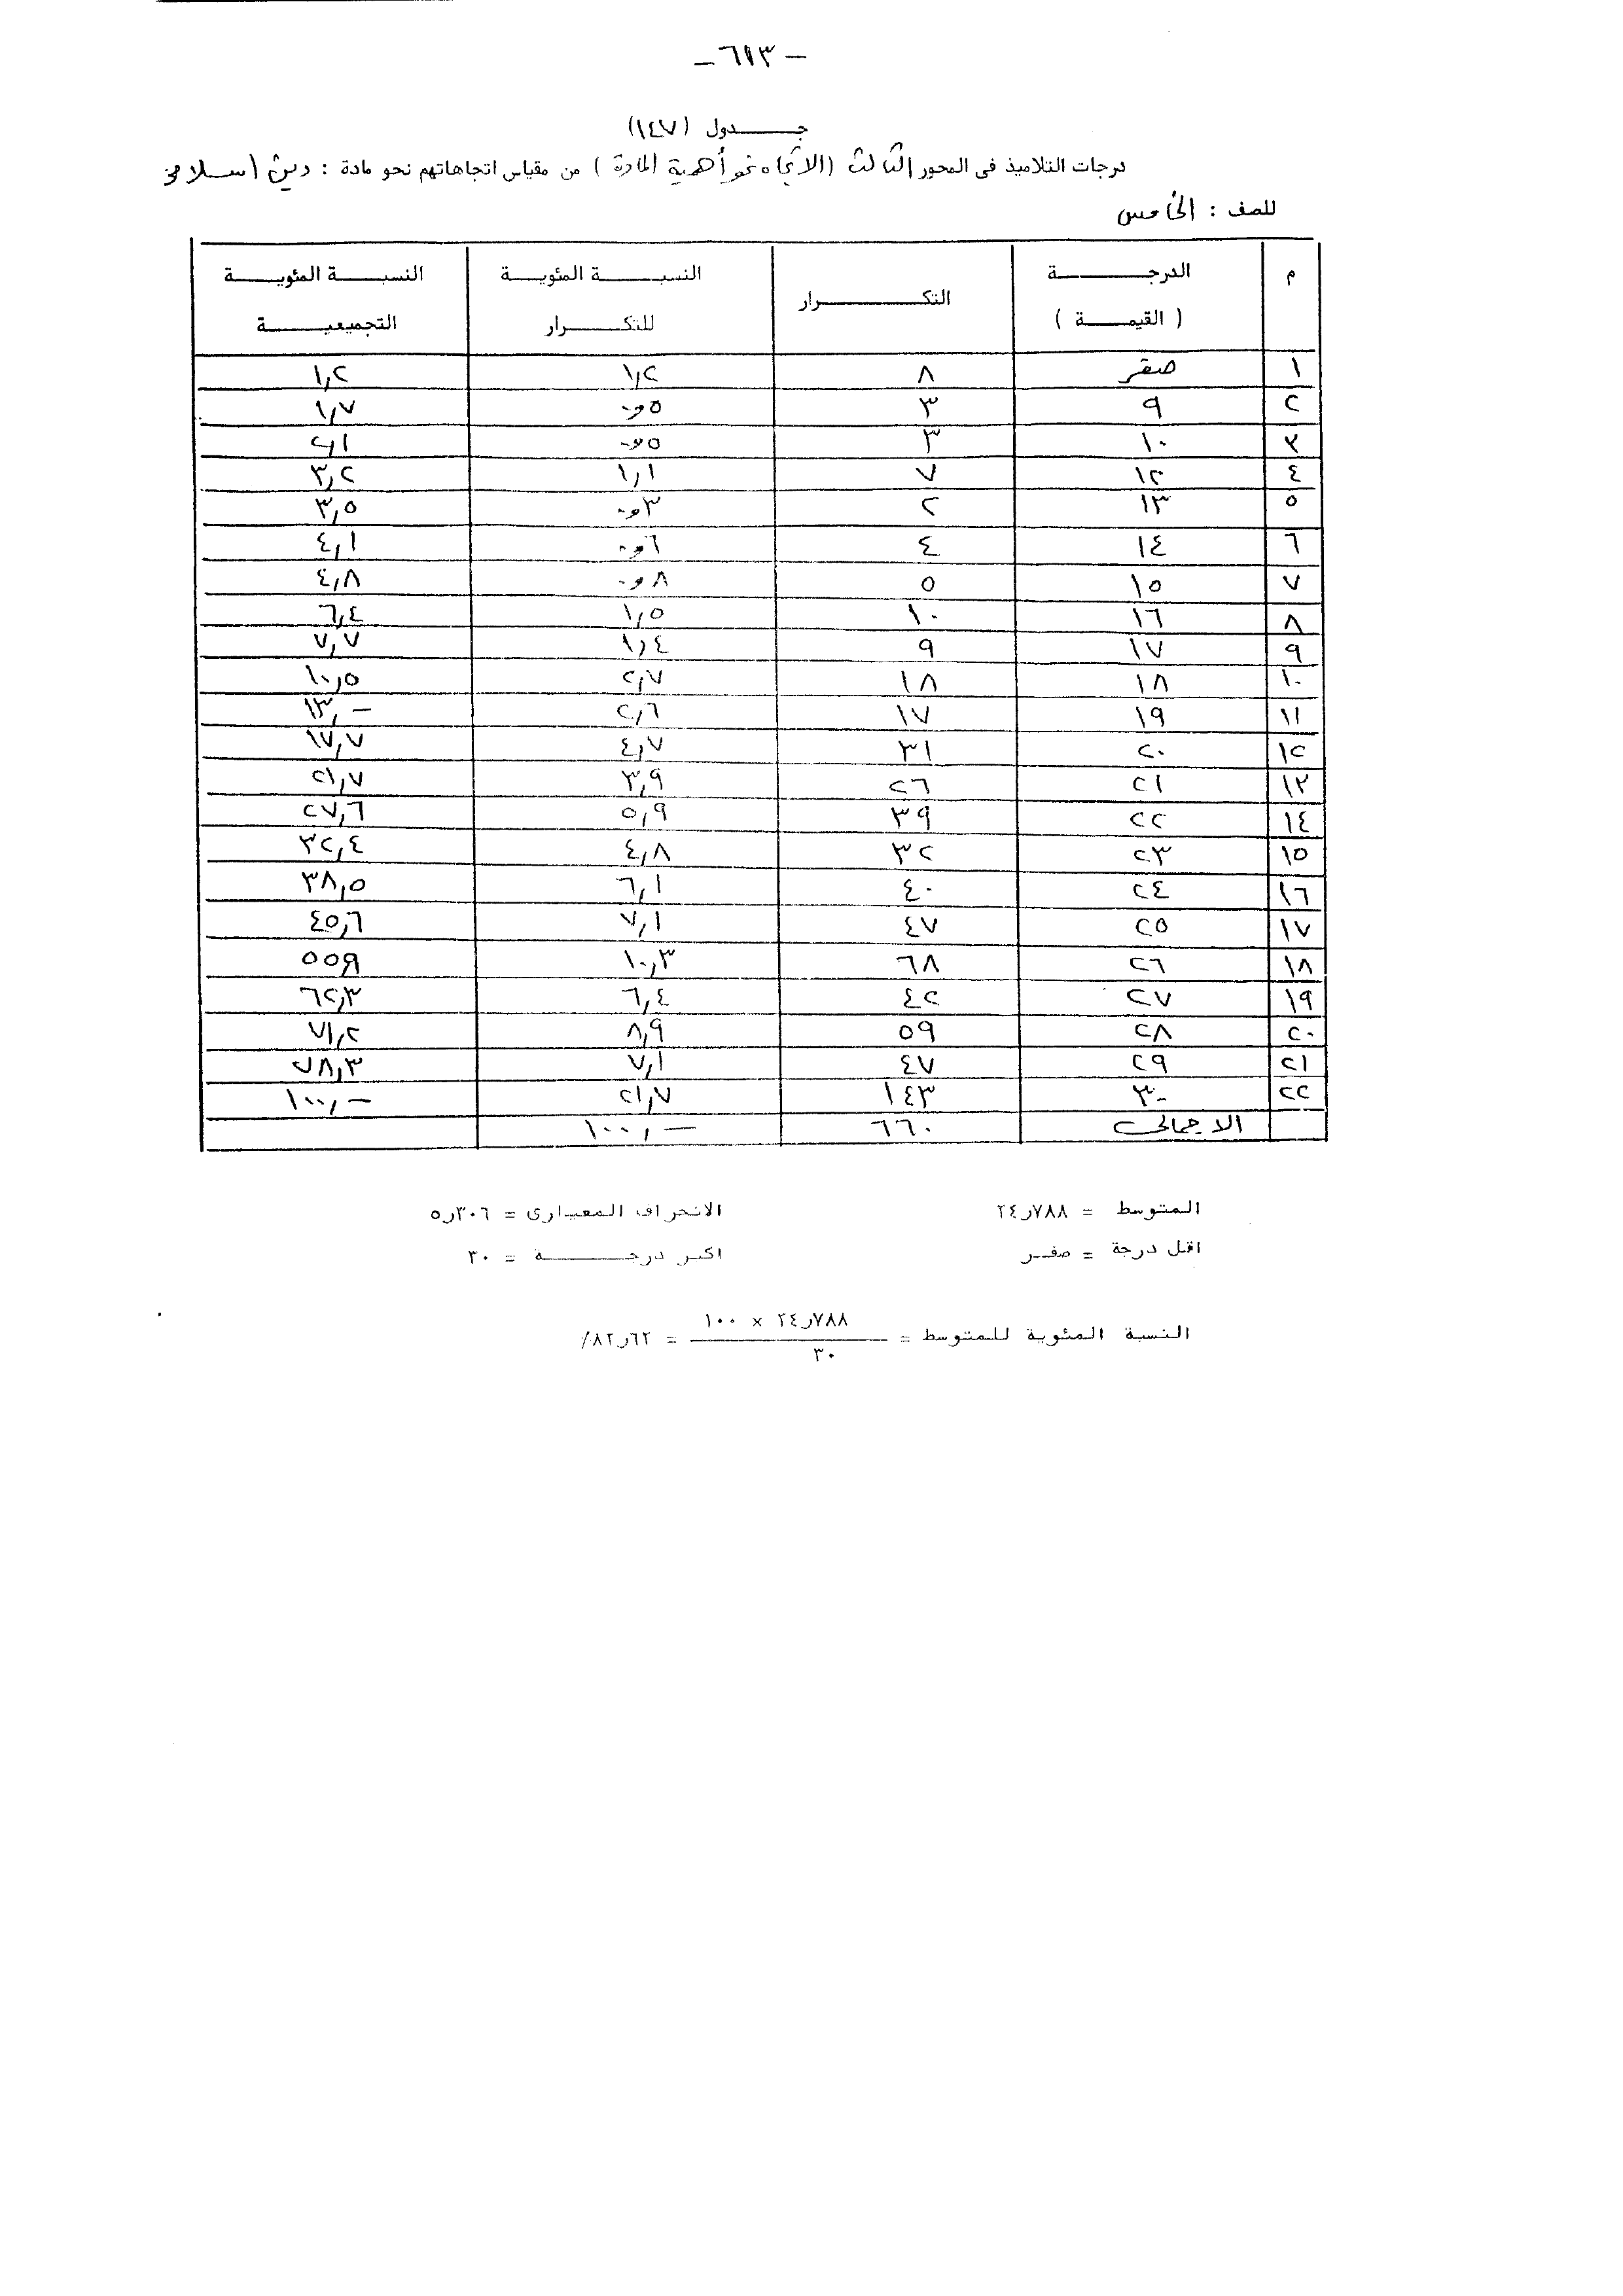 - ٦١٣ -
جدول (١٤٧)
درجات التلاميذ فى المحور الثالث (الاتجاه نحو أهمية المادة) من مقياس اتجاهاتهم نحو مادة : دين اسلامى
للصف : الخامس
م الدرجة (القيمة) التكرار النسبة المئوية للتكرار النسبة المئوية التجميعية
١ صفر ٨ ١,٢ ١,٢
٢ ٩ ٣ ٥و٠ ١,٧
٣ ١٠ ٣ ٥و٠ ٢,١
٤ ١٢ ٧ ١,١ ٣,٢
٥ ١٣ ٢ ٣و٠ ٣,٥
٦ ١٤ ٤ ٦و٠ ٤,١
٧ ١٥ ٥ ٨و٠ ٤,٨
٨ ١٦ ١٠ ١,٥ ٦,٤
٩ ١٧ ٩ ١,٤ ٧,٧
١٠ ١٨ ١٨ ٢,٧ ١٠,٥
١١ ١٩ ١٧ ٢,٦ ١٣,-
١٢ ٢٠ ٣١ ٤,٧ ١٧,٧
١٣ ٢١ ٢٦ ٣,٩ ٢١,٧
١٤ ٢٢ ٣٩ ٥,٩ ٢٧,٦
١٥ ٢٣ ٣٢ ٤,٨ ٣٢,٤
١٦ ٢٤ ٤٠ ٦,١ ٣٨,٥
١٧ ٢٥ ٤٧ ٧,١ ٤٥,٦
١٨ ٢٦ ٦٨ ١٠,٣ ٥٥,٩
١٩ ٢٧ ٤٢ ٦,٤ ٦٢,٣
٢٠ ٢٨ ٥٩ ٨,٩ ٧١,٢
٢١ ٢٩ ٤٧ ٧,١ ٧٨,٣
٢٢ ٣٠ ١٤٣ ٢١,٧ ١٠٠,-
الاجمالى ٦٦٠ ١٠٠,-
المتوسط = ٧٨٨ر٢٤ الانحراف المعيارى = ٣٠٦ر٥
اقل درجة = صفر اكبر درجة = ٣٠
النسبة المئوية للمتوسط = ٧٨٨ر٢٤ × ١٠٠ / ٣٠ = ٦٢ر٨٢٪